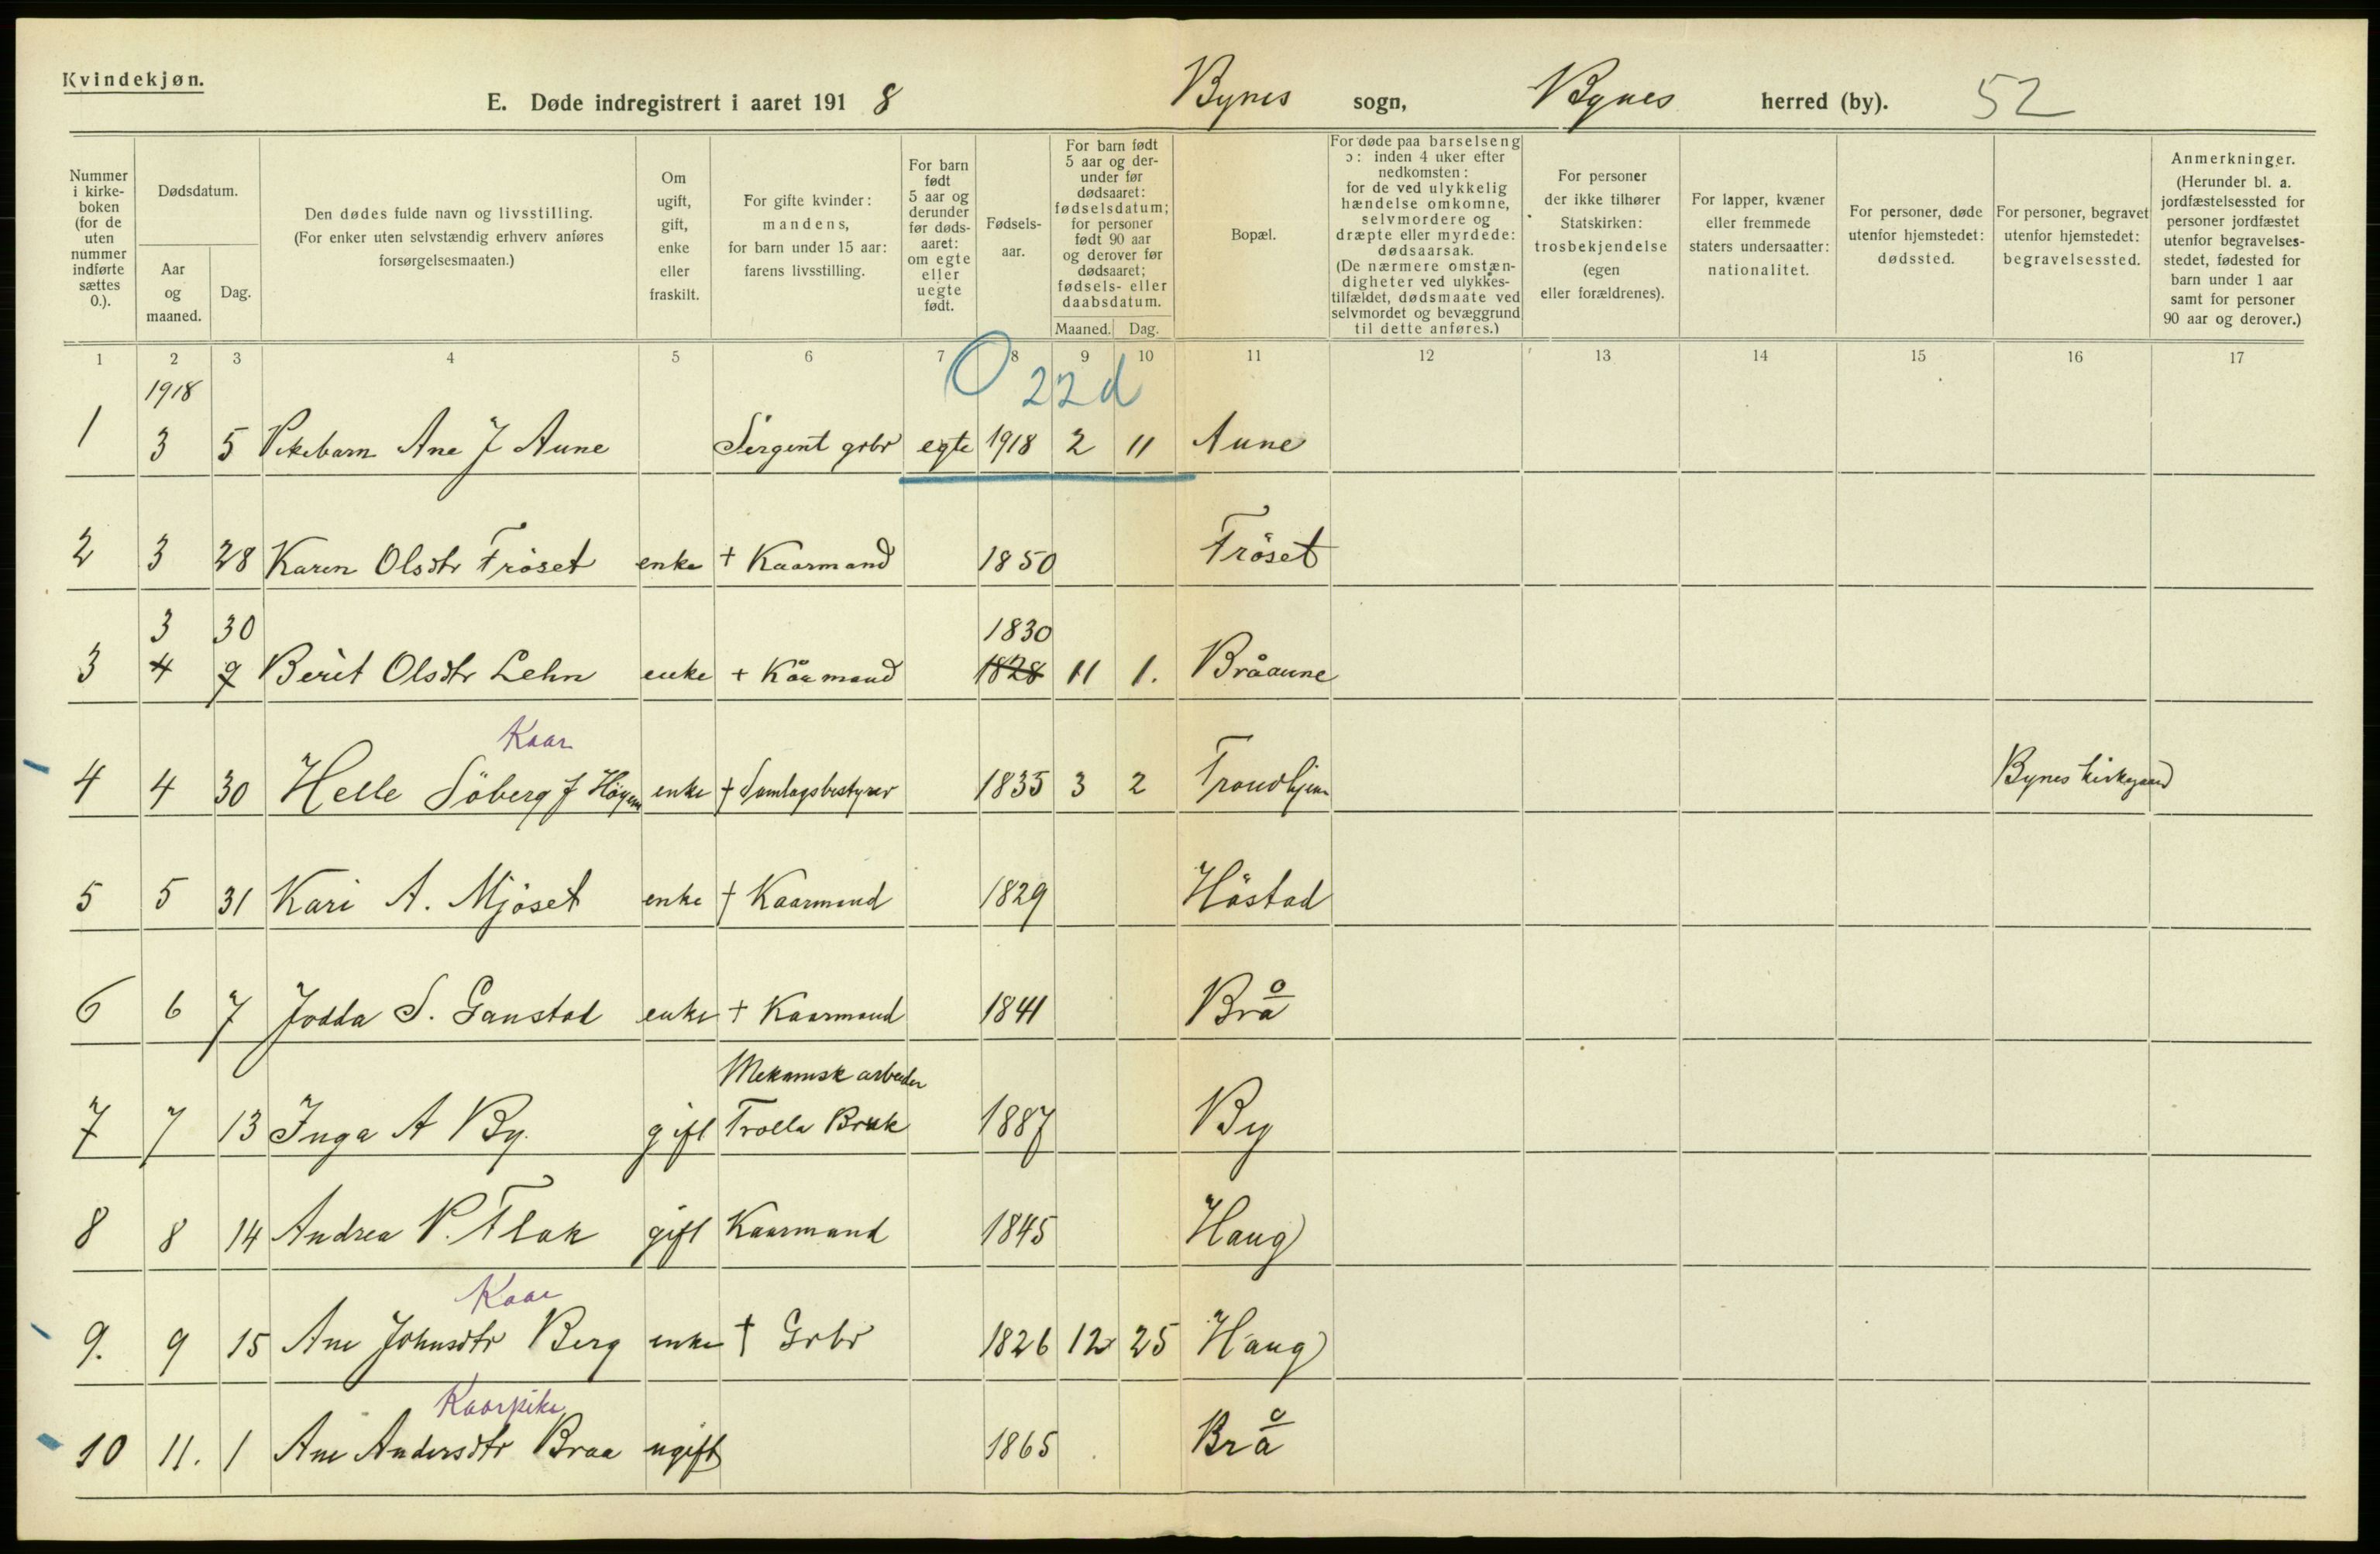 Kvindekjøn.
E. Døde indregistrert i aaret 1918 Bynes sogn, Bynes herred (by). 52
Nummer i kirke-boken (for de uten nummer indførte sættes 0.).
Dødsdatum.
Aar og maaned.
Dag.
Den dødes fulde navn og livsstilling.
(For enker uten selvstændig erhverv anføres
forsørgelsesmaaten.)
Om ugift, gift, enke eller fraskilt.
For gifte kvinder:
mandens,
for barn under 15 aar:
farens livsstilling.
For barn født 5 aar og derunder før døds-aaret: om egte eller uegte født.
Fødsels-aar.
For barn født 5 aar og der-under før dødsaaret: fødselsdatum; for personer født 90 aar og derover før dødsaaret; fødsels- eller daabsdatum.
Maaned. Dag.
Bopæl.
For døde paa barselseng
ɔ: inden 4 uker efter
nedkomsten:
for de ved ulykkelig
hændelse omkomne,
selvmordere og
dræpte eller myrdede:
dødsaarsak.
(De nærmere omstæn-
digheter ved ulykkes-
tilfældet, dødsmaate ved
selvmordet og bevæggrund
til dette anføres.)
For personer
der ikke tilhører
Statskirken:
trosbekjendelse
(egen
eller forældrenes).
For lapper, kvæner
eller fremmede
staters undersaatter:
nationalitet.
For personer, døde
utenfor hjemstedet:
dødssted.
For personer, begravet
utenfor hjemstedet:
begravelsessted.
Anmerkninger.
(Herunder bl. a.
jordfæstelsessted for
personer jordfæstet
utenfor begravelses-
stedet, fødested for
barn under 1 aar
samt for personer
90 aar og derover.)
1 2 3 4 5 6 7 8 9 10 11 12 13 14 15 16 17
1918
O 22d
1 3 5 Pikebarn Ane J Aune Sergent grbr egte 1918 2 11 Aune
2 3 28 Karen Olsdtr Fröset enke + Kaarmand 1850 Fröset
3 30 1830
3 4 9 Berit Olsdtr Lehn enke + Kåamand 1828 11 1. Bråaune
Kaar
4 4 30 Helle Söberg f Höyem enke + Samlagsbestyrer 1835 3 2 Trondhjem Bynes kirkegaard
5 5 31 Kari A. Mjöset enke + Kaarmand 1829 Höstad
6 6 7 Jodda S. Ganstad enke + Kaarmand 1841 Brå
Mekanisk arbeider
7 7 13 Inga A By. gift Trolla Bruk 1887 By
8 8 14 Andrea P. Flak gift Kaarmand 1845 Haug
Kaar
9. 9 15 Ane Johnsdtr Berg enke + Grbr 1826 12 25 Haug
Kaarpike
10 11. 1 Ane Andersdtr Braa ugift 1865 Brå